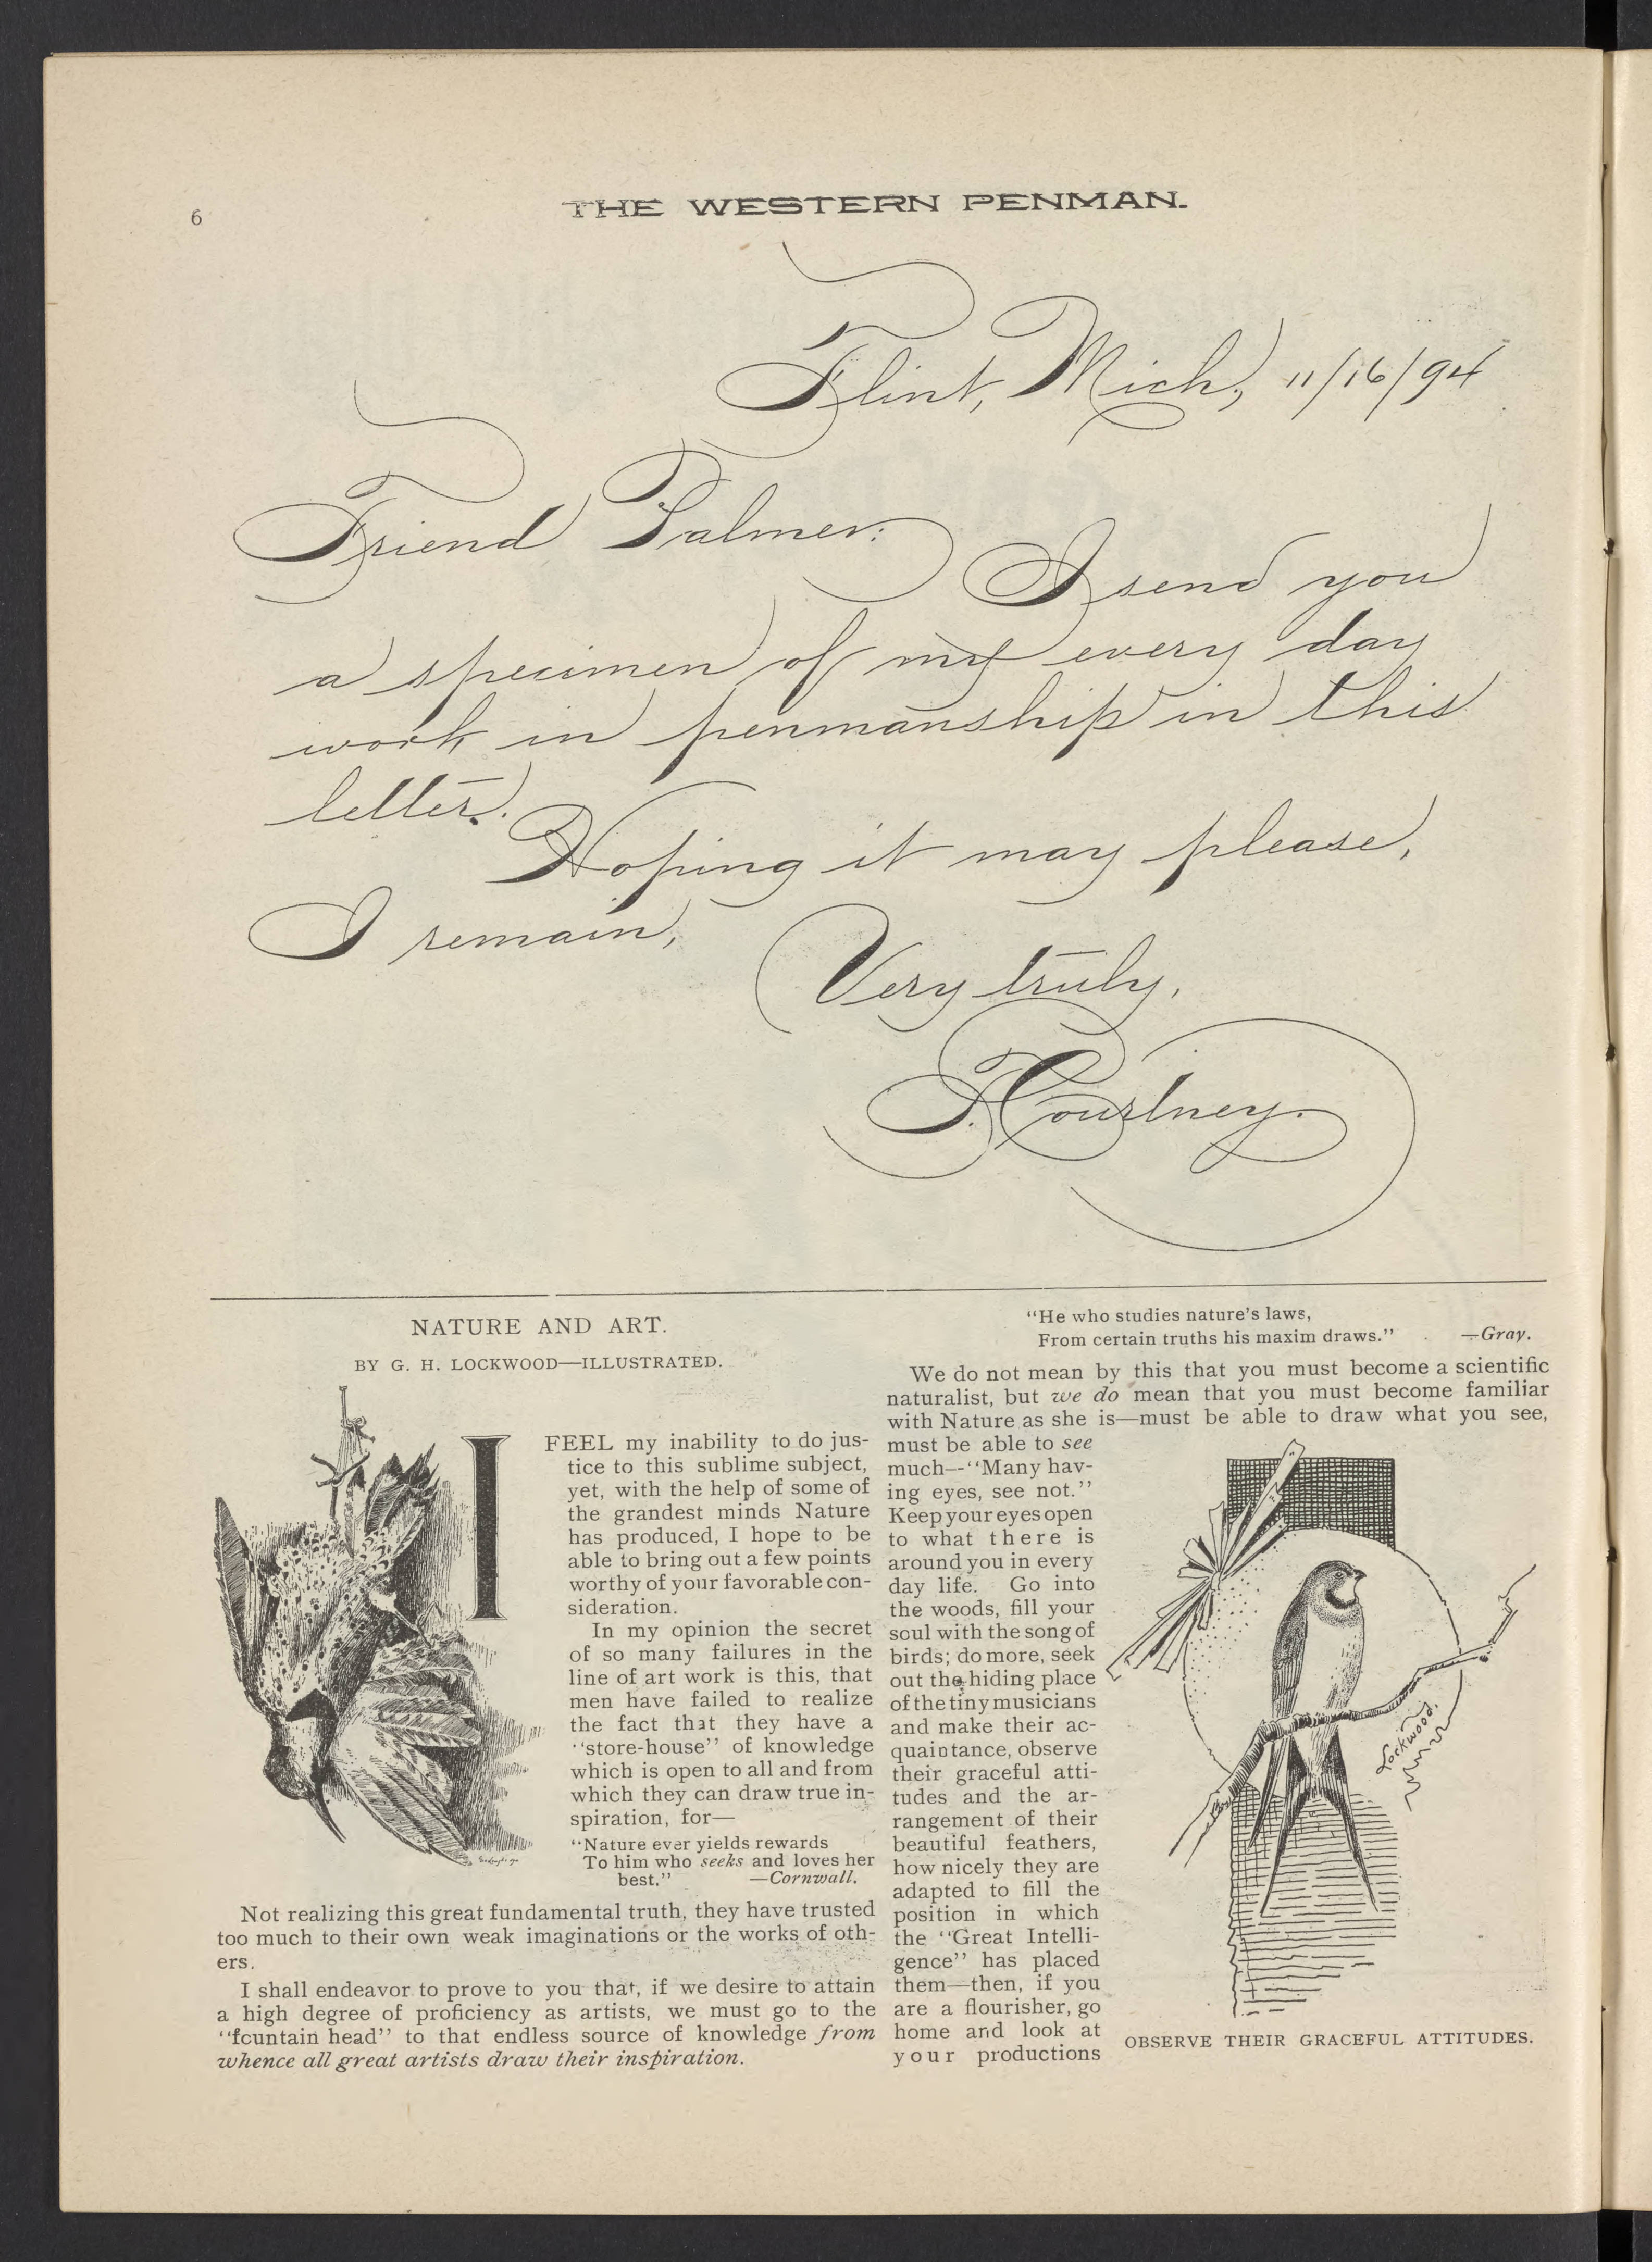 6
THE WESTERN PENMAN.
Flint, Mich, 11/16/94
Friend Palmer:
I send you
a specimen of my every day
work in penmanship in this
letter.
Hoping it may please,
I remain,
Very truly,
F. Courtney.
NATURE AND ART.
BY G. H. LOCKWOOD—ILLUSTRATED.
I FEEL my inability to do jus-
tice to this sublime subject,
yet, with the help of some of
the grandest minds Nature
has produced, I hope to be
able to bring out a few points
worthy of your favorable con-
sideration.
In my opinion the secret
of so many failures in the
line of art work is this, that
men have failed to realize
the fact that they have a
"store-house" of knowledge
which is open to all and from
which they can draw true in-
spiration, for—
"Nature ever yields rewards
To him who seeks and loves her
best."   —Cornwall.
Not realizing this great fundamental truth, they have trusted
too much to their own weak imaginations or the works of oth-
ers.
I shall endeavor to prove to you that, if we desire to attain
a high degree of proficiency as artists, we must go to the
"fountain head" to that endless source of knowledge from
whence all great artists draw their inspiration.
"He who studies nature's laws,
From certain truths his maxim draws."   —Gray.
We do not mean by this that you must become a scientific
naturalist, but we do mean that you must become familiar
with Nature as she is—must be able to draw what you see,
must be able to see
much--"Many hav-
ing eyes, see not."
Keep your eyes open
to what there is
around you in every
day life. Go into
the woods, fill your
soul with the song of
birds; do more, seek
out the hiding place
of the tiny musicians
and make their ac-
quaintance, observe
their graceful atti-
tudes and the ar-
rangement of their
beautiful feathers,
how nicely they are
adapted to fill the
position in which
the "Great Intelli-
gence" has placed
them—then, if you
are a flourisher, go
home and look at
your productions
Lockwood.
OBSERVE THEIR GRACEFUL ATTITUDES.